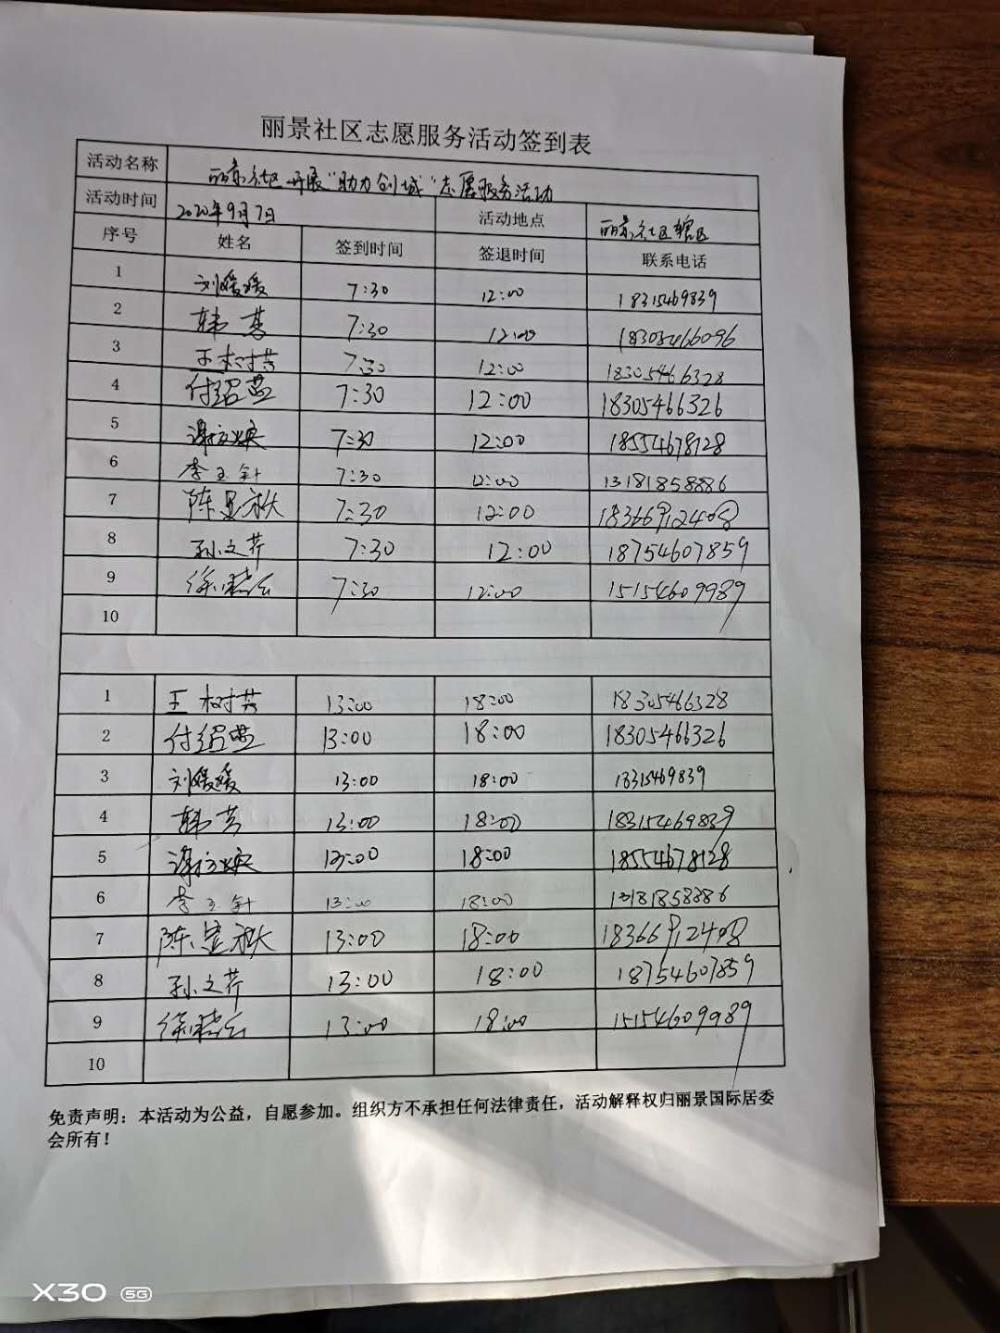 丽景社区志愿服务活动签到表
活动名称 丽景社区开展“助力创城”志愿服务活动
活动时间 2020年9月7日 活动地点 丽景社区辖区
序号 姓名 签到时间 签退时间 联系电话
1 刘媛媛 7:30 12:00 18315469839
2 韩芳 7:30 12:00 18305466096
3 王树芳 7:30 12:00 18305466328
4 付绍燕 7:30 12:00 18305466326
5 7:30 12:00 18554678128
6 李玉针 7:30 12:00 13181858886
7 陈显秋 7:30 12:00 18366912408
8 孙文芹 7:30 12:00 18754607859
9 徐晓云 7:30 12:00 15154609989
10
1 王树芳 13:00 18:00 18305466328
2 付绍燕 13:00 18:00 18305466326
3 刘媛媛 13:00 18:00 18315469839
4 韩芳 13:00 18:00 18315469839
5 13:00 18:00 18554678128
6 李玉针 13:00 18:00 13181858886
7 陈显秋 13:00 18:00 18366912408
8 孙文芹 13:00 18:00 18754607859
9 徐晓云 13:00 18:00 15154609989
10
免责声明：本活动为公益，自愿参加。组织方不承担任何法律责任，活动解释权归丽景国际居委
会所有！
X30 5G